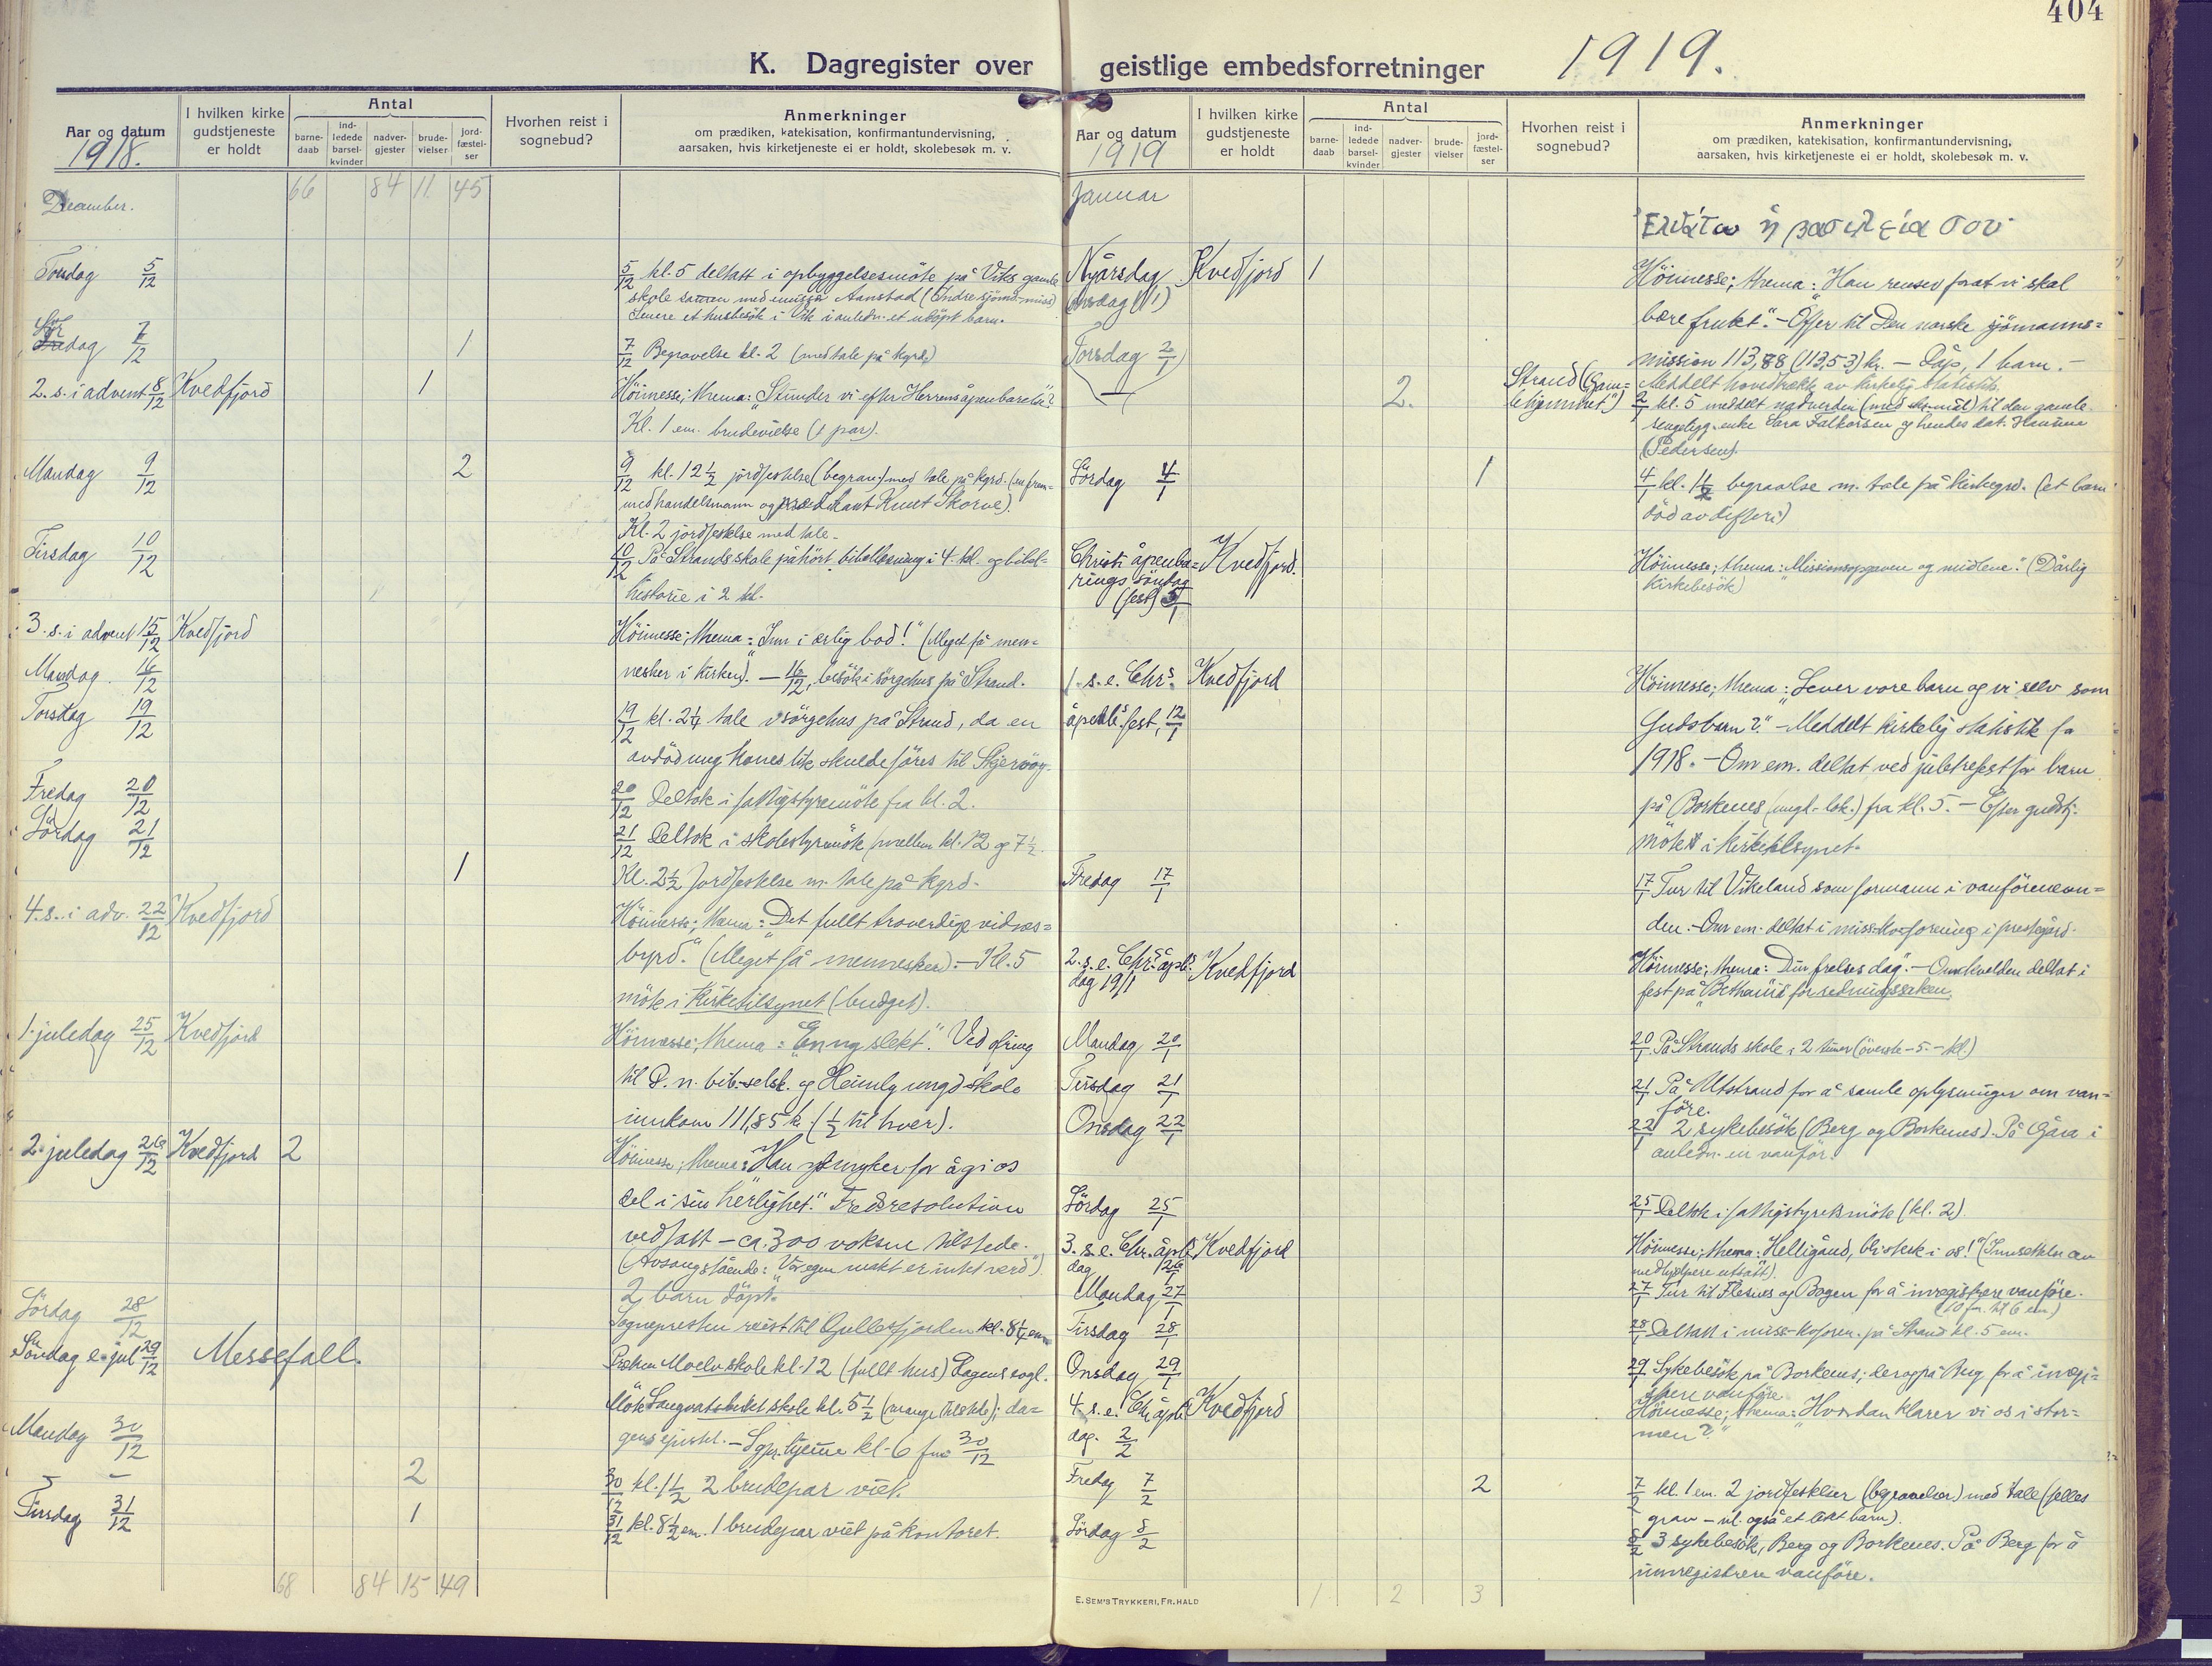 404
K. Dagregister over geistlige embedsforretninger 1919.
Aar og datum
1918.
I hvilken kirke gudstjeneste er holdt
Antal
barne-daab
ind-ledede barsel-kvinder
nadver-gjester
brude-vielser
jord-fæstel-ser
Hvorhen reist i sognebud?
Anmerkninger
om prædiken, katekisation, konfirmantundervisning,
aarsaken, hvis kirketjeneste ei er holdt, skolebesøk m. v.
December. 66 84 11 45
Torsdag 5/12
5/12 kl. 5 deltatt i opbyggelsesmöte på Viks gamle
skole sammen med emissær Aanstad (Indre sjømd-miss)
Senere et husbesök i Vik i anledn. et udöpt barn.
Lördag 7/12 1
7/12 Begravelse kl. 2 (med tale på kgrd.)
2. s. i advent 8/12 Kvedfjord 1
Höimesse; thema: "Stunder vi efter Herrens åpenbarelse"?
Kl. 1 em. brudevielse (1 par).
Mandag 9/12 2
9/12 kl. 12 1/2 jordfestelse (begrav.) med tale på kgrd. (en frem-
med handelsmann og predikant Knut Skorve).
Kl. 2 jordfestelse med tale.
Tirsdag 10/12
10/12 På Strands skole påhört bibellesning i 4. kl. og bibel-
historie i 2 kl.
3. s. i advent 15/12 Kvedfjord
Höimesse; thema: "Inn i ærlig bod!" (Meget få men-
nesker i kirken). – 16/12, besök i sörgehus på Strand.
Mandag 16/12
Torsdag 19/12
19/12 kl. 2 1/4 tale i sörgehus på Strand, da en
avdöd ung kones lik skulde föres til Skjervöy.
Fredag 20/12
20/12 Deltok i fattigstyremöte fra kl. 2.
Lördag 21/12
21/12 Deltok i skolestyremöte mellem kl. 12 og 7 1/2.
1
Kl. 2 1/2 jordfestelse m. tale på kgrd.
4. s. i adv. 22/12 Kvedfjord
Höimesse; thema: "Det fullt troverdige vidnes-
byrd". (Meget få mennesker). – Kl. 5
möte i kirketilsynet (budget).
1. juledag 25/12 Kvedfjord
Höimesse; thema: "En ny slekt". Ved ofring
til D. n. bib.-selsk. og Heimly ungd.skole
innkom 111,85 k (1/2 til hver).
2. juledag 26/12 Kvedfjord 2
Höimesse; thema: "Han for å gi os
del i sin herlighet." Fredsresolution
vedtatt – ca. 300 voksne tilstede.
(Avsang stående: "Vår egen makt er intet verd").
2 barn döpt.
Lördag 28/12
Sognepresten reist til Gullesfjorden kl. 8 1/2 em
Söndag e. jul 29/12 Messefall.
Preken Moelv skole kl. 12 (fullt hus) Dagens evgl.
Möte Langvatsbukt skole kl. 5 1/2 (mange tilstede); da-
gens epistel. – Sgpr. hjeme kl. 6 fm 30/12
Mandag 30/12
– 2
30/12 kl. 1 1/2 2 brudepar viet.
Tirsdag 31/12 1
31/12 kl. 8 1/2 em. 1 brudepar viet på kontoret.
68 84 15 49
Aar og datum
1919
I hvilken kirke gudstjeneste er holdt
Antal
barne-daab
ind-ledede barsel-kvinder
nadver-gjester
brude-vielser
jord-fæstel-ser
Hvorhen reist i sognebud?
Anmerkninger
om prædiken, katekisation, konfirmantundervisning,
aarsaken, hvis kirketjeneste ei er holdt, skolebesøk m. v.
Januar
Ἐλθάτω ἡ βασιλεία σου
Nyårsdag (onsdag 1/1) Kvedfjord 1
Höimesse; thema: "Han renser forat vi skal
bære frukt". – Offer til Den norske sjömanns-
mission 113,88 (113,53) kr. – Dåp, 1 barn. –
Meddelt hovedtrekk av kirkelig statistikk.
Torsdag 2/1 2. Strand ("Gam-lehjemmet")
2/1 kl. 5 meddelt nadverden (med skr.mål) til den gamle
sengeligg. enke Sara Falkorsen og hendes dat. Hanna
(Pedersen).
Lördag 4/1 1
4/1 kl. 1 1/2 begravelse m. tale på kirkegrd. (et barn
död av difteri)
Christi åpenba-
rings söndag
(fest) 5/1 Kvedfjord.
Höimesse; thema: "Missionsopgaven og midlene". (Dårlig
kirkebesök)
1. s. e. Chrs åpenbs fest, 12/1 Kvedfjord
Höimesse; thema: "Lever vore barn og vi selv som
Guds barn?" – Meddelt kirkelig statistik fo
1918. – Om em. deltat ved juletrefest for barn
på Borkenes (ungd. lok.) fra kl. 5. – Efter gudstj.
möte i kirketilsynet.
Fredag 17/1
17/1 Tur til Vikeland som formann i vanförenevn-
den. – Om em. deltat i miss.kv.forening i prestegård.
2. s. e. Chrs åpb.
dag 19/1 Kvedfjord
Höimesse; thema: "Din frelses dag". – Om kvelden deltat i
fest på "Bethania" for redningssaken.
Mandag 20/1
20/1 På Strands skole, 2 timer (överste – 5. – kl.)
Tirsdag 21/1
21/1 På Utstrand for å samle oplysninger om van-
före.
Onsdag 22/1
22/1 2 sykebesök (Berg og Borkenes). På Gåra i
anledn. en vanför.
Lördag 25/1
25/1 Deltok i fattigstyretsmöte (kl. 2).
3. s. e. Chr. åpb.
dag 26/1 Kvedfjord
Höimesse; thema: "Helligånd, bli sterk i os!" (Innsettelse av
medhjelpere utsatt).
Mandag 27/1
27/1 Tur til Flesnes og Bogen for å inregistrere vanföre.
(10 fm. til 6 em)
Tirsdag 28/1
28/1 Deltatt i miss-kv.foren. på Strand kl. 5 em.
Onsdag 29/1
29/1 Sykebesök på Borkenes; derog på Berg for å inregi-
strere vanföre
4 s. e. Chr. åpb.
dag. 2/2 Kvedfjord
Höimesse; thema: "Hvordan klarer vi os i stor-
men?"
Fredag 7/2 2
7/2 kl. 1 em. 2 jordfestelser (begravelser) med tale (felles
grav – også et likt barn).
Lördag 8/2
8/2 3 sykebesök, Berg og Borkenes. På Berg for å
innregistrere vanföre.
1 2 3
E. SEM'S TRYKKERI, FR.HALD